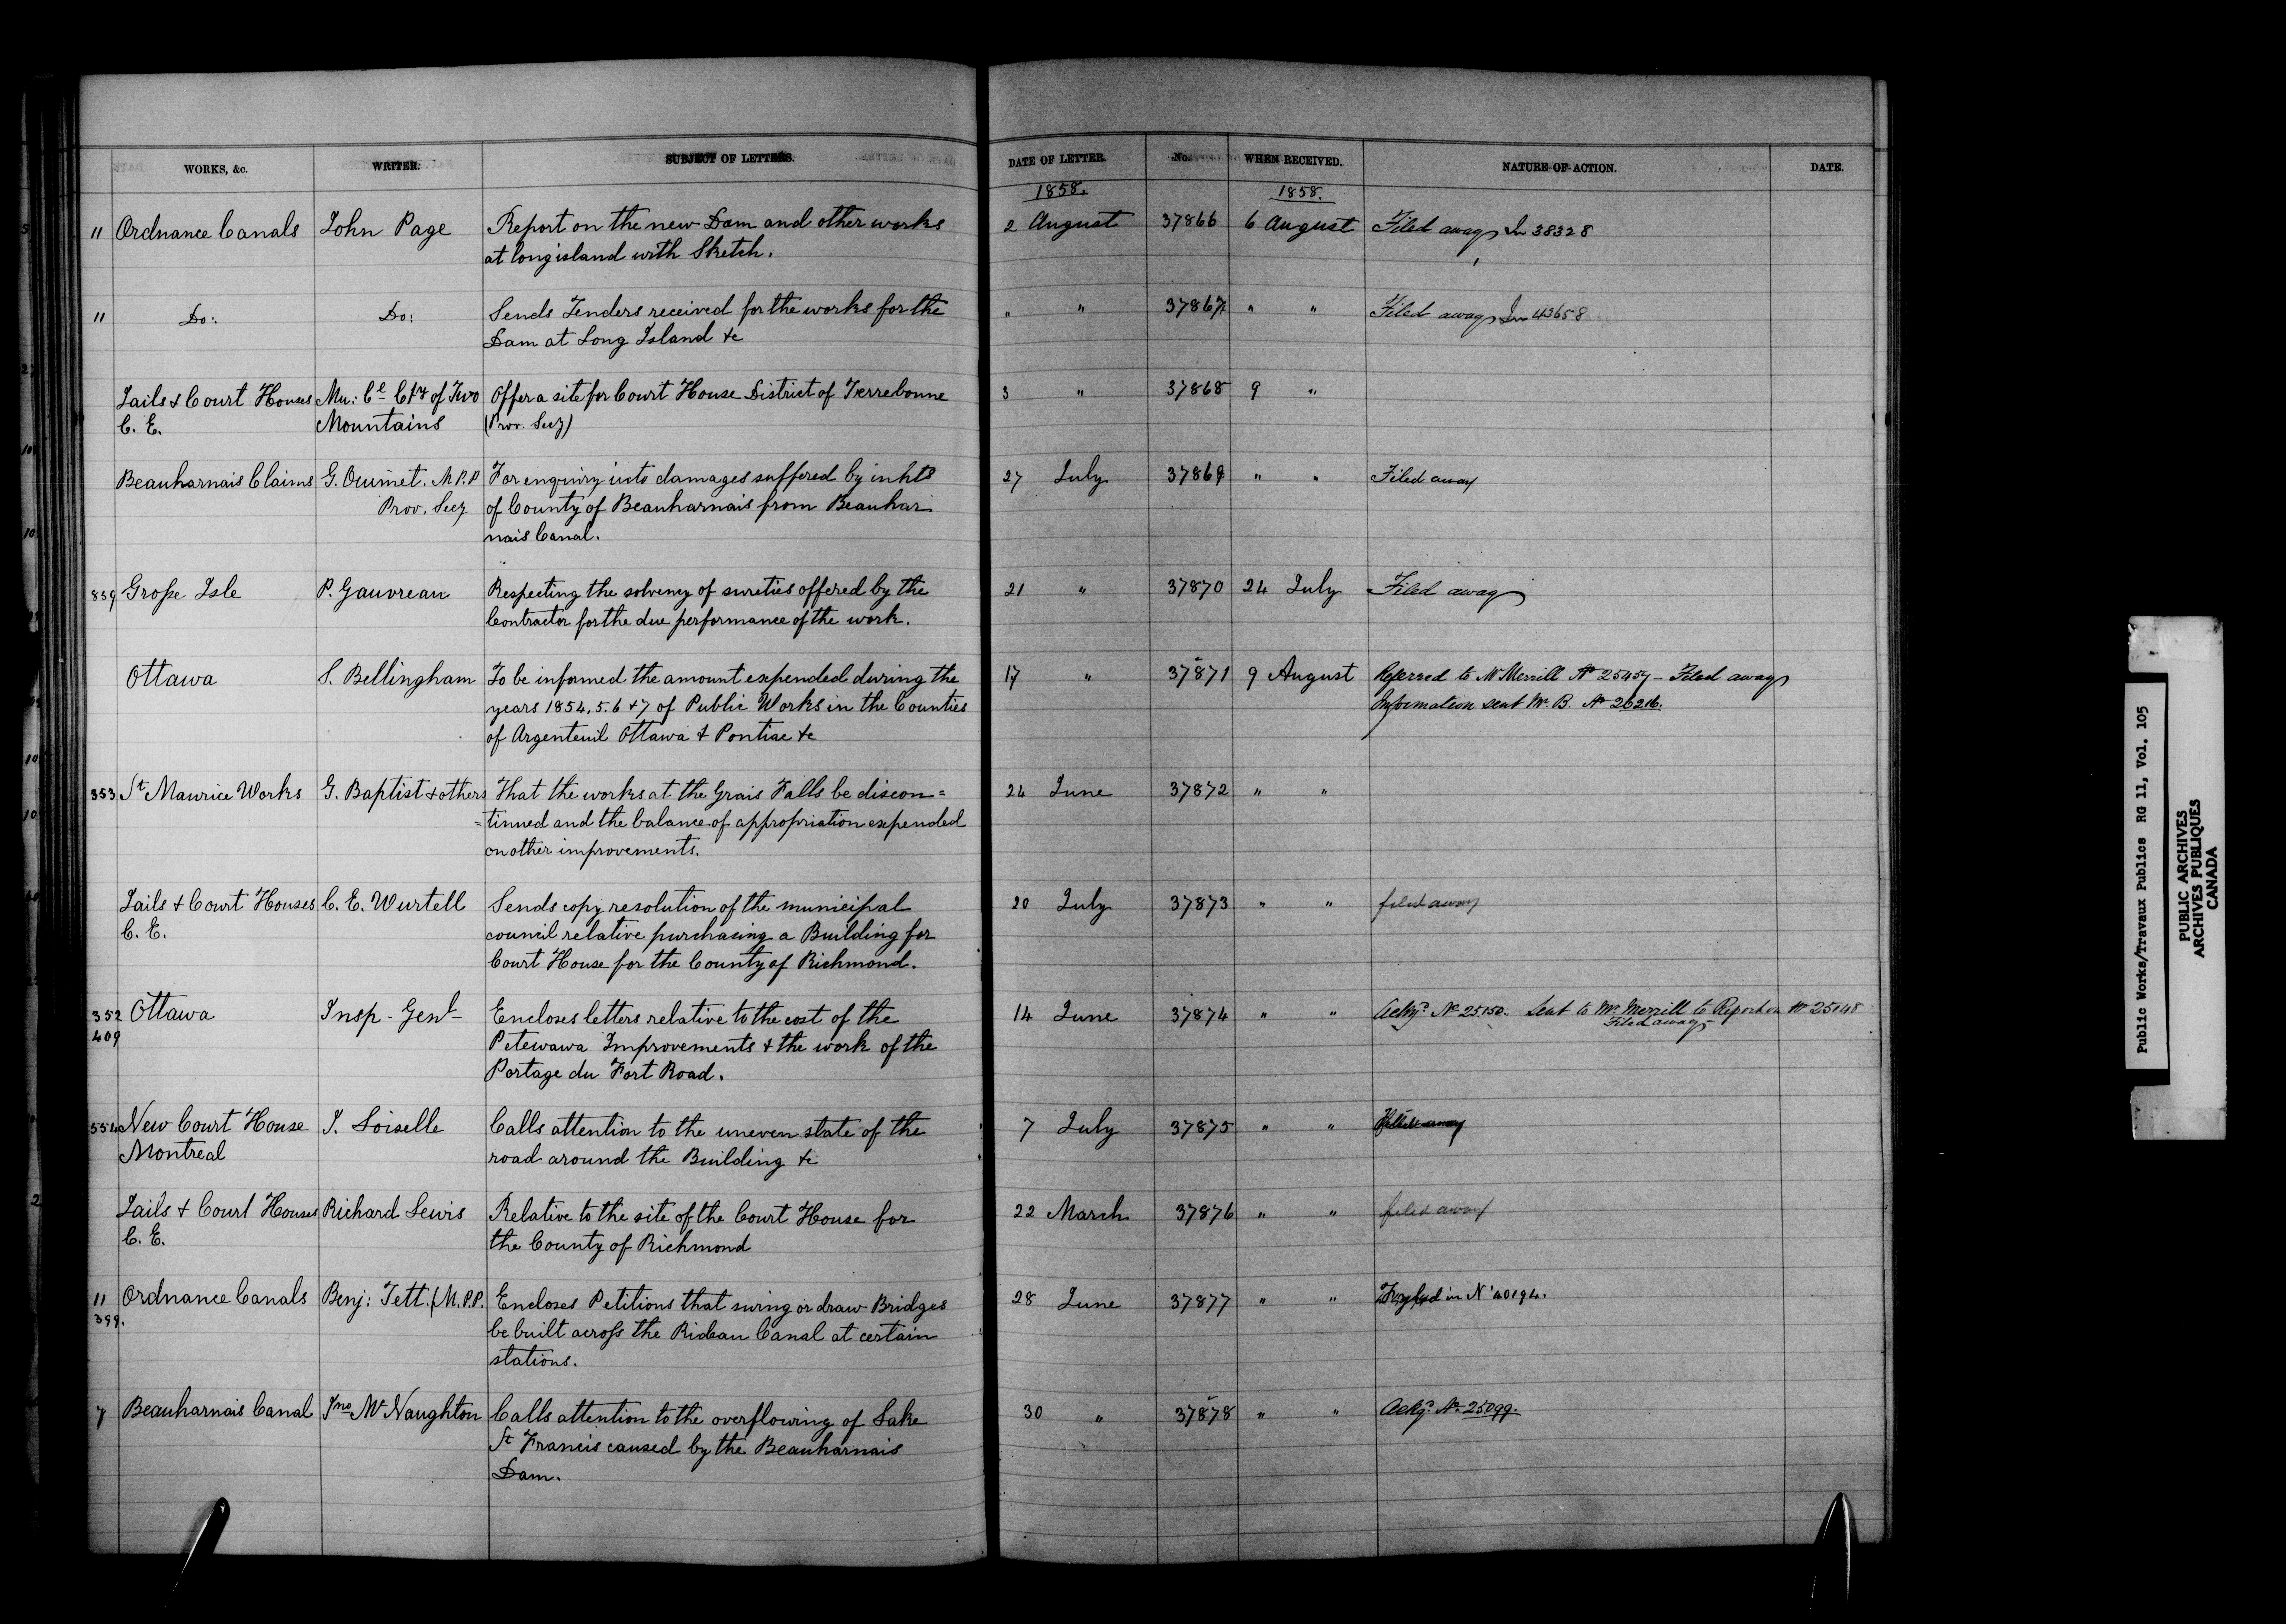 WORKS, &c. WRITER. SUBJECT OF LETTERS. DATE OF LETTER. No. WHEN RECEIVED. NATURE OF ACTION. DATE.
1858. 1858.
11 Ordnance Canals John Page Report on the new Dam and other works 2 August 37866 6 August Filed away In 38328
at long island with Sketch.
11 Do: Do: Sends Tenders received for the works for the " " 37867 " " Filed away In 43658
Dam at Long Island &c
Jails & Court Houses Mu: Cl Cty of Two Offer a site for Court House District of Terrebonne 3 " 37868 9 "
C. E. Mountains (Prov. Secy)
Beauharnais Claims G. Ouimet. M.P.P For enquiry into damages suffered by inhts 27 July 37869 " " Filed away
Prov. Secy of County of Beauharnais from Beauhar
nais Canal.
839 Grosse Isle P. Gauvreau Respecting the solvency of sureties offered by the 21 " 37870 24 July Filed away
Contractor for the due performance of the work.
Ottawa S. Bellingham To be informed the amount expended during the 17 " 37871 9 August Referred to Mr Merrill No 25457 - Filed away
years 1854, 5. 6 & 7 of Public Works in the Counties Information sent Mr. B. No 26216.
of Argenteuil Ottawa & Pontiac &c
353 St Maurice Works G. Baptist & others That the works at the Grais Falls be discon= 24 June 37872 " "
=tinued and the balance of appropriation expended
on other improvements.
Jails & Court Houses C. E. Wurtell Sends copy resolution of the municipal 20 July 37873 " " filed away
C. E. council relative purchasing a Building for
Court House for the County of Richmond.
352 Ottawa Insp - Genl Encloses letters relative to the cost of the 14 June 37874 " " Ackgd No 25150. Sent to Mr Merrill to Report on No 25148
409 Petewawa Improvements & the work of the Filed away
Portage du Fort Road.
554 New Court House J. Loiselle Calls attention to the uneven state of the 7 July 37875 " " Filed away
Montreal road around the Building &c
Jails & Court Houses Richard Lewis Relative to the site of the Court House for 22 March 37876 " " filed away
C. E. the County of Richmond
11 Ordnance Canals Benj: Tett. (M.P.P. Encloses Petitions that swing or draw Bridges 28 June 37877 " " in No 40194.
399. be built across the Rideau Canal at certain
stations.
7 Beauharnais Canal Jno McNaughton Calls attention to the overflowing of Lake 30 " 37878 " " Ackgd No 25099.
St Francis caused by the Beauharnais
Dam.
Public Works/Travaux Publics RG 11, Vol. 105
PUBLIC ARCHIVES
ARCHIVES PUBLIQUES
CANADA